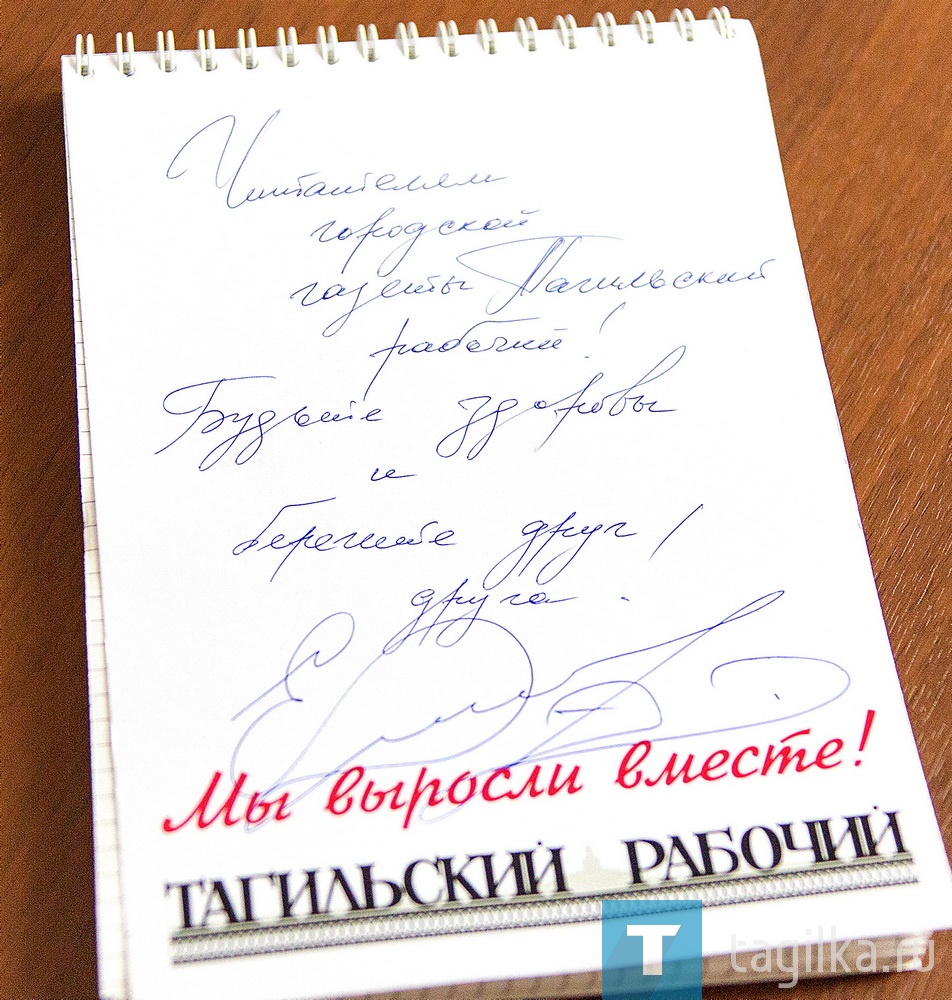 Читателям
городской
газеты Тагильский
рабочий!
Будьте здоровы
и
берегите друг
друга.
Мы выросли вместе!
ТАГИЛЬСКИЙ РАБОЧИЙ
T tagilka.ru